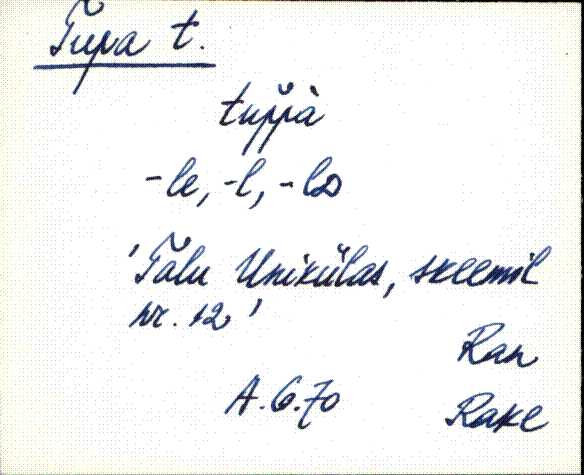 Tupa t.
tup̆p̀à
-le, -l, -lD
'Talu Unikülas, skeemil
nr. 12'
Ran
A.G.70
Rake